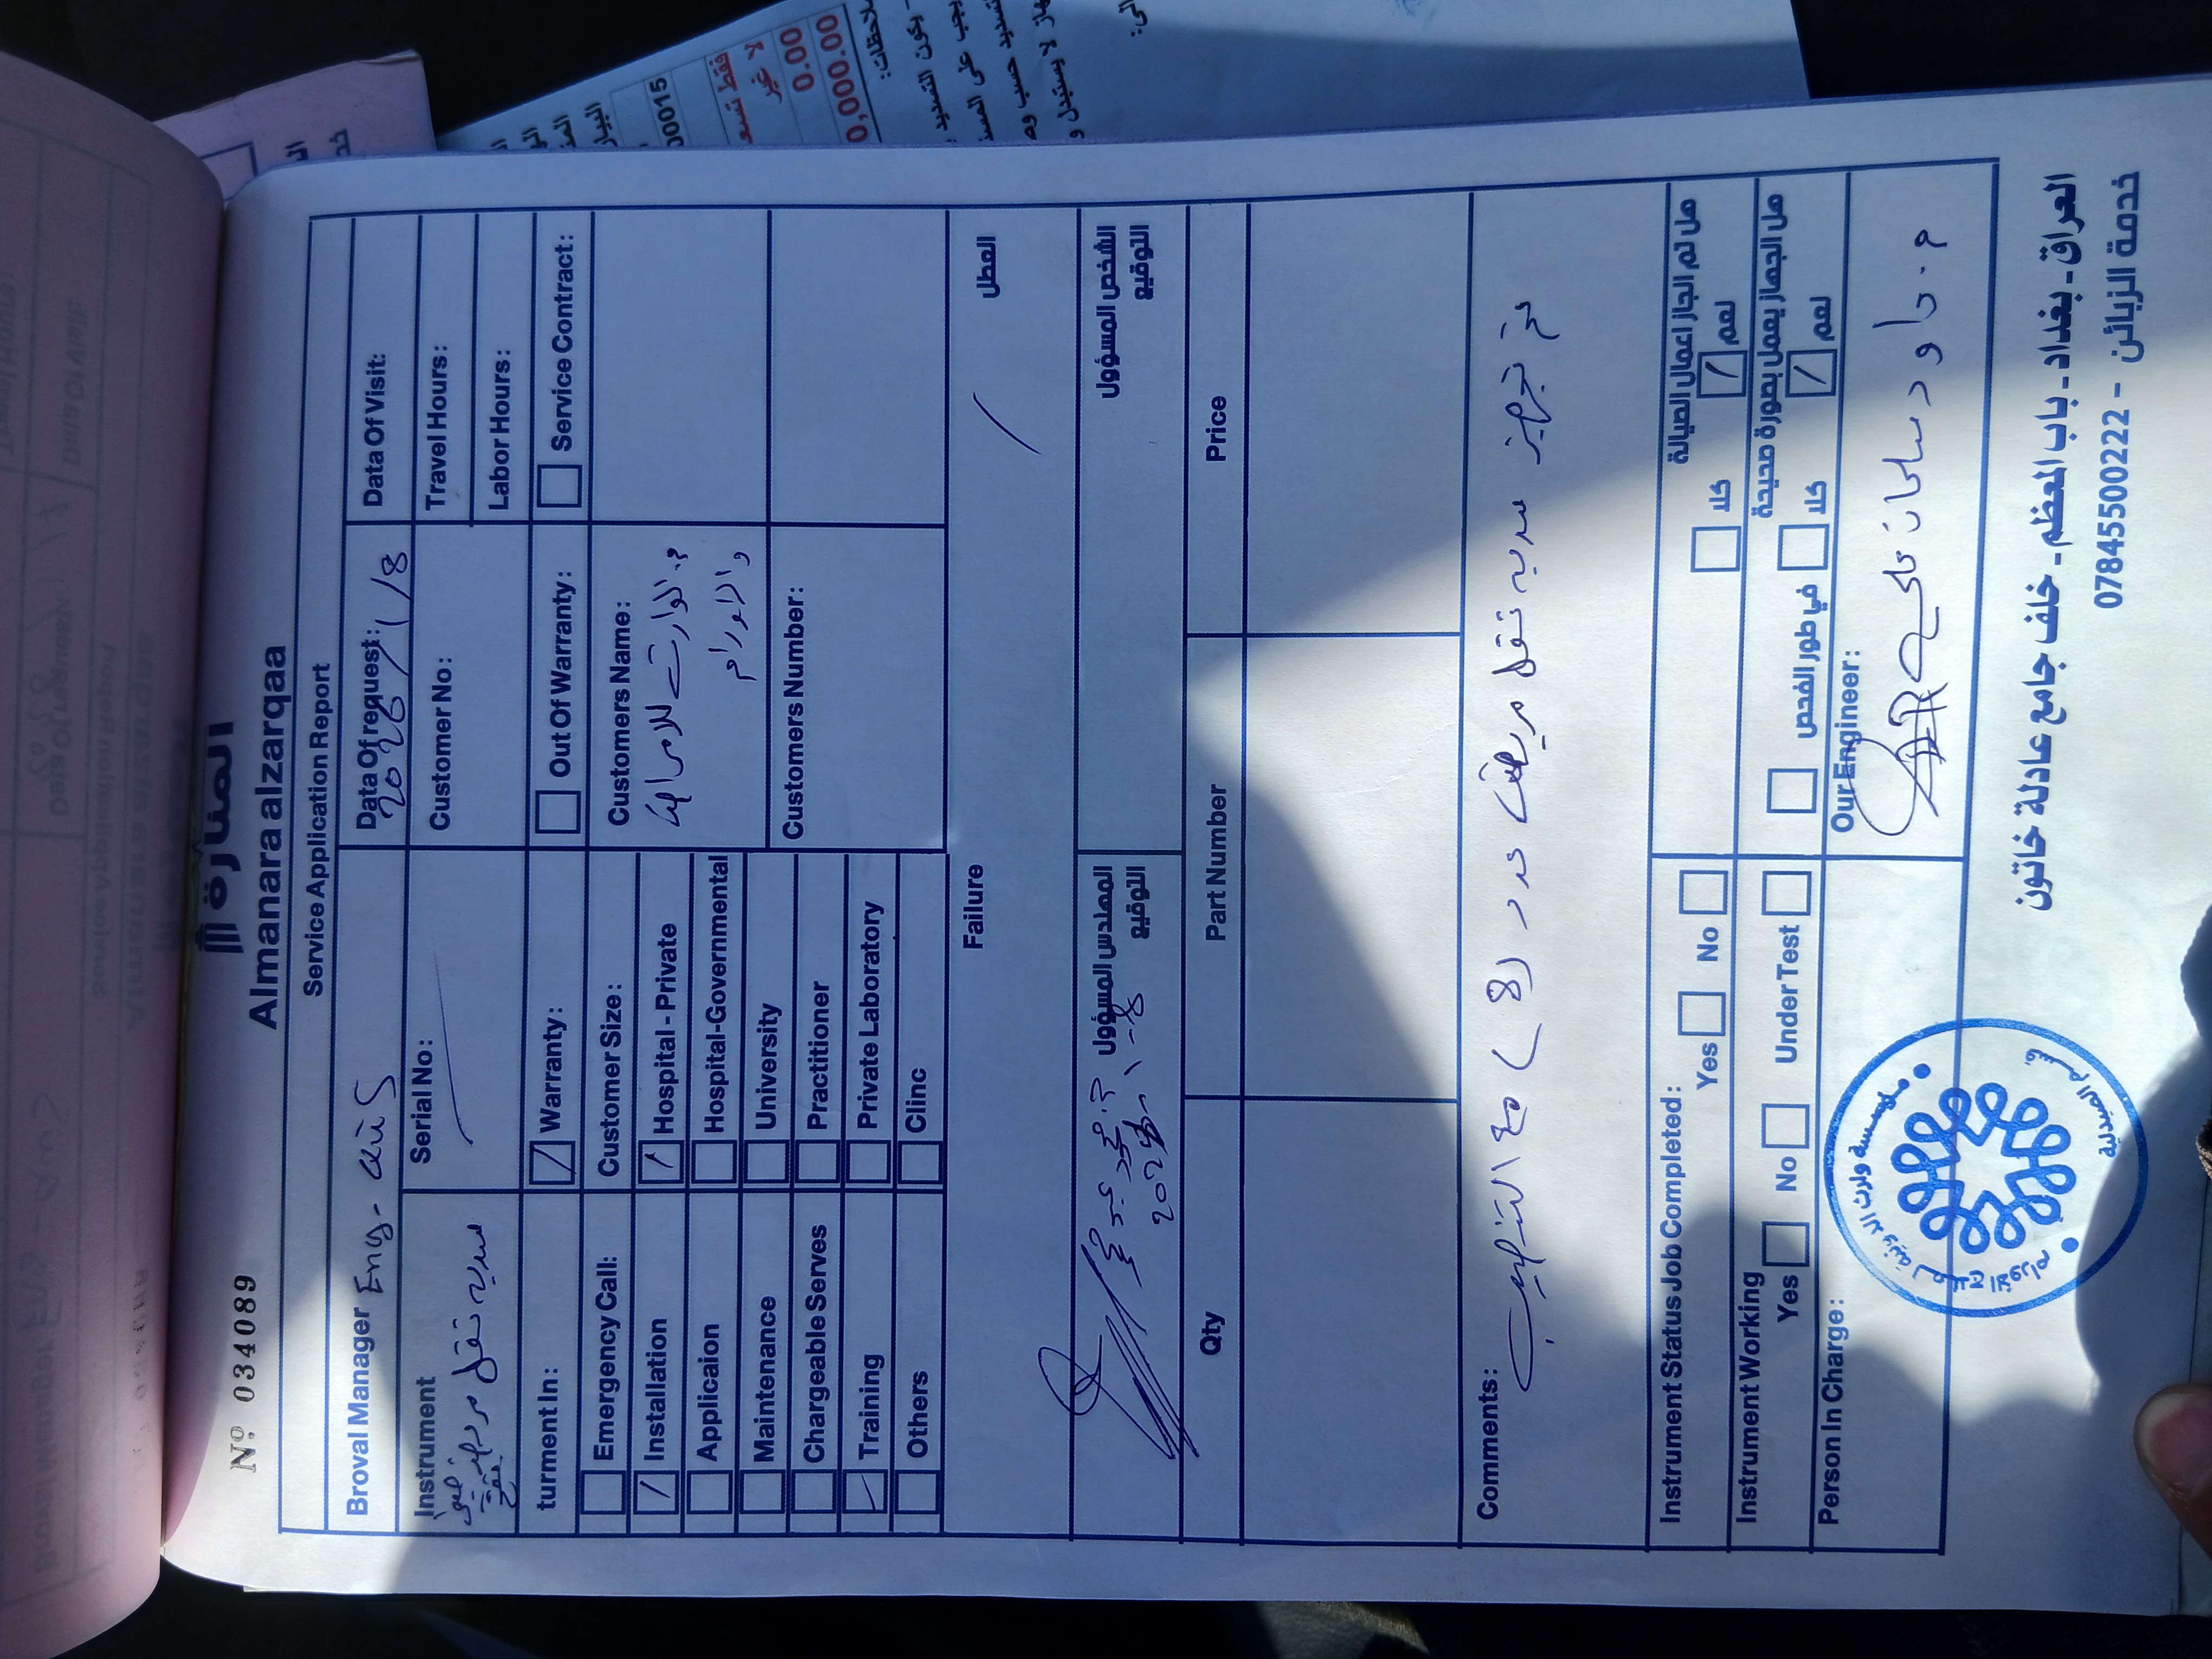 Nº 034089
المنارة
Almanara alzarqaa
Service Application Report
Broval Manager Eng-
Data Of request: 2026/1/8
Data Of Visit:
Instrument
سدية نقل مريض
Serial No:
Customer No:
Travel Hours:
Labor Hours:
turment In:
Warranty:
Out Of Warranty:
Service Contract:
Emergency Call:
Customer Size:
Customers Name:
م. الوارث للامراض
والاورام
Installation
Hospital - Private
Applicaion
Hospital-Governmental
Maintenance
University
Customers Number:
Chargeable Serves
Practitioner
Training
Private Laboratory
Others
Clinc
Failure
العطل
المهندس المسؤول
التوقيع
الشخص المسؤول
التوقيع
Qty
Part Number
Price
Comments:
تم تجهيز سدية نقل مريض عدد (8) مع التنصيب
Instrument Status Job Completed:
Yes
No
هل تم انجاز اعمال الصيانة
نعم
كلا
Instrument Working
Yes
No
Under Test
هل الجهاز يعمل بصورة صحيحة
نعم
كلا
في طور الفحص
Person In Charge:
Our Engineer:
م. داود سلمان علي
قسم الصيدلية
العراق - بغداد - باب المعظم - خلف جامع عادلة خاتون
خدمة الزبائن - 07845500222
00015
لا غير
0.00
0,000.00